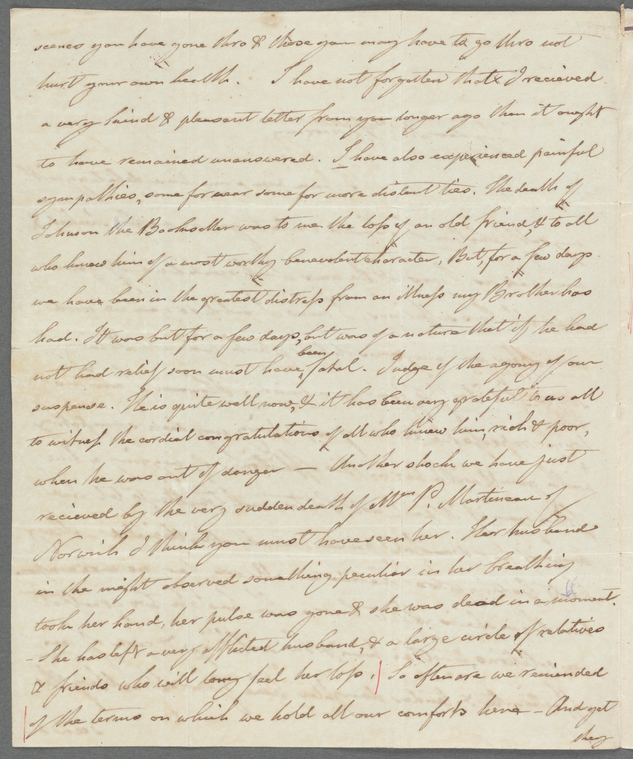 scenes you have gone thro & those you may have to go thro not
hurt your own health. I have not forgotten that I recieved
a very kind & pleasant letter from you longer ago than it ought
to have remained unanswered. I have also experienced painful
sympathies, some for near some for more distant ties. The death of
Johnson the Bookseller was to me the loss of an old friend, & to all
who knew him of a most worthy benevolent character, But, for a few days
we have been in the greatest distress from an illness my Brother has
had. It was but for a few days, but was of a nature that if he had
not had relief soon must have been fatal. Judge of the agony of our
suspense. He is quite well now, & it has been very grateful to us all
to witness the cordial congratulations of all who knew him, rich & poor,
when he was out of danger — Another shock we have just
recieved by the very sudden death of Mrs P. Martineau of
Norwich I think you must have seen her. Her husband
in the night observed something peculiar in her breathing
took her hand, her pulse was gone & she was dead in a moment.
- She has left a very afflicted husband, & a large circle of relatives
& friends who will long feel her loss. So often are we reminded
of the terms on which we hold all our comforts here - And yet
they